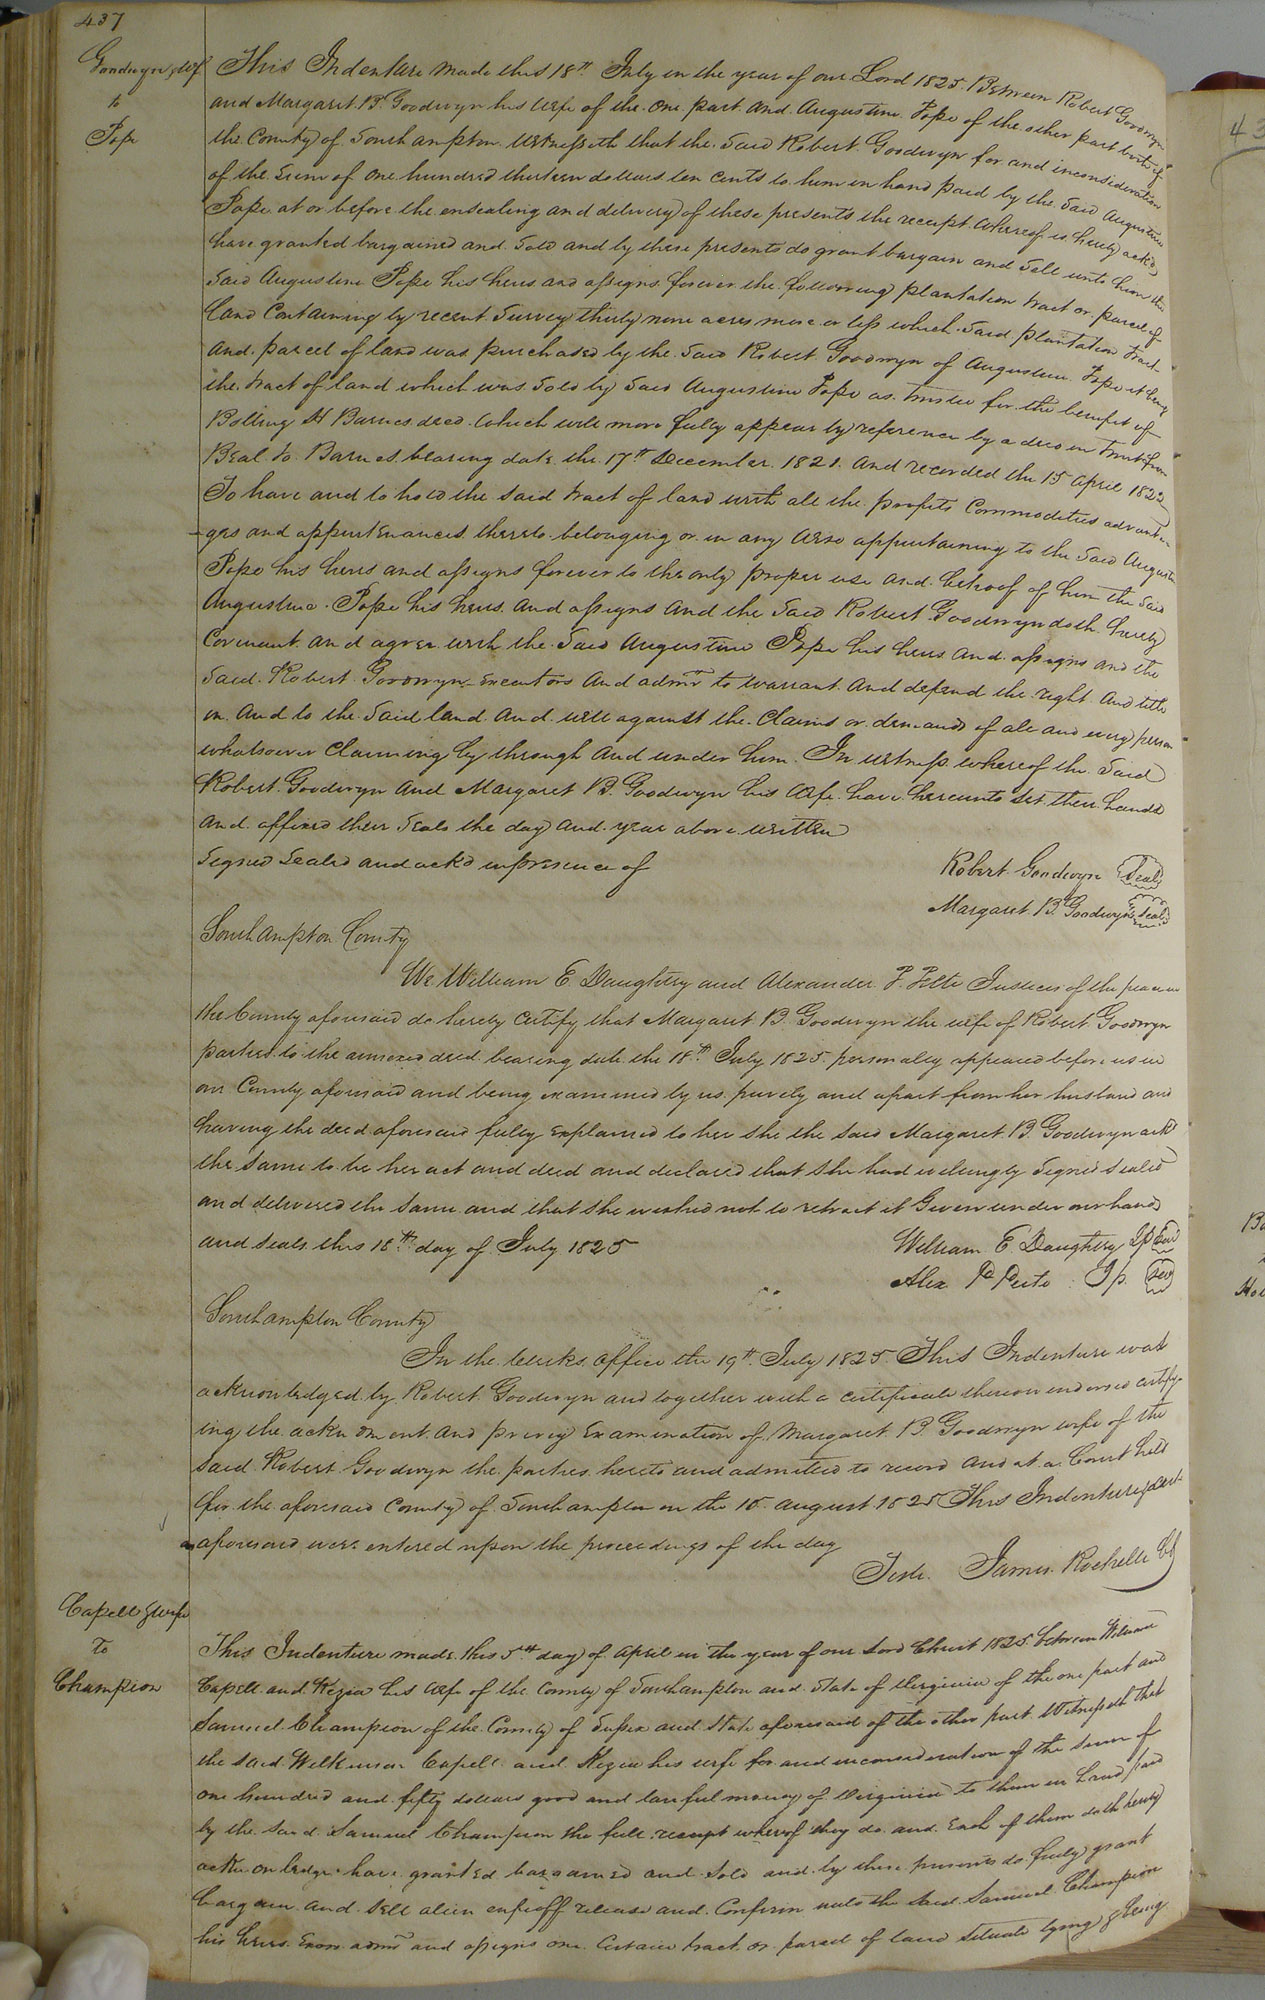 437
Goodwyn & wf
to
Pope
This Indenture made this 18th July in the year of our Lord 1825 Between Robert Goodwyn
and Margaret B. Goodwyn his wife of the one part and Augustine Pope of the other part both of
the County of Southampton Witnesseth that the Said Robert Goodwyn for and inconsideration
of the Sum of one hundred thirteen dollars ten cents to him in hand paid by the Said Augustine
Pope at or before the ensealing and delivery of these presents the receipt whereof is hereby ackd
have granted bargained and Sold and by these presents do grant bargain and Sell unto him the
Said Augustine Pope his heirs and assigns forever the following plantation tract or parcel of
land Containing by recent Survey thirty nine acres more or less which Said plantation tract
and parcel of land was purchased by the Said Robert Goodwyn of Augustine Pope it being
the tract of land which was Sold by Said Augustine Pope as trustee for the benefit of
Bolling H Barnes decd which will more fully appear by reference by a deed in trust from
Beal to Barnes bearing date the 17th December 1821 and recorded the 15 April 1822
To have and to hold the said tract of land with all the profits Commodities advanta
-ges and appurtenances thereto belonging or in any wise appertaining to the Said Augustine
Pope his heirs and assigns forever to the only proper use and behoof of him the Said
Augustine Pope his heirs and assigns and the Said Robert Goodwyn doth hereby
Covenant and agree with the Said Augustine Pope his heirs and assigns and the
Said Robert Goodwyn Executors and admrs to warrant and defend the right and title
in and to the Said land and will against the Claims or demands of all and every person
whatsoever Claiming by through and under him In witness whereof the Said
Robert Goodwyn and Margaret B. Goodwyn his wife have hereunto Set their hands
and affixed their Seals the day and year above written
Signed Sealed and ackd in presence of
Robert Goodwyn Seal
Margaret B. Goodwyn Seal
Southampton County
We William E. Daughtry and Alexander P. Peete Justices of the peace in
the County aforesaid do hereby certify that Margaret B. Goodwyn the wife of Robert Goodwyn
parties to the annexed deed bearing date the 18th July 1825 personally appeared before us in
our County aforesaid and being examined by us privily and apart from her husband and
having the deed aforesaid fully Explained to her she the said Margaret B. Goodwyn ackd
the same to be her act and deed and declared that She had willingly Signed Sealed
and delivered the same and that she wished not to retract it Given under our hands
and seals this 18th day of July 1825
William E. Daughtry Jp Seal
Alex P. Peete Jp Seal
Southampton County
In the Clerks office the 19th July 1825 This Indenture was
acknowledged by Robert Goodwyn and together with a certificate thereon endorsed certify-
ing the acknowment and privy Examination of Margaret B. Goodwyn wife of the
Said Robert Goodwyn the parties hereto and admitted to record and at a Court held
for the aforesaid County of Southampton on the 15 August 1825 This Indenture & cert
aforesaid were entered upon the proceedings of the day
Teste James Rochelle Cl
Capell & wife
To
Champion
This Indenture made this 5th day of April in the year of our Lord Christ 1825 between
Capell and Kezia his wife of the County of Southampton and State of Virginia of the one part and
Samuel Champion of the County of Sussex and State aforesaid of the other part Witnesseth that
the said Wilkinson Capell and Kezia his wife for and inconsideration of the sum of
one hundred and fifty dollars good and lawful money of Virginia to them in hand paid
by the Said Samuel Champion the full receipt whereof they do and Each of them doth hereby
acknowledge have granted bargained and Sold and by these presents do fully grant
bargain and Sell alien enfeoff release and Confirm unto the Said Samuel Champion
his heirs Exors admrs and assigns one Certain tract or parcel of land Situate lying & being